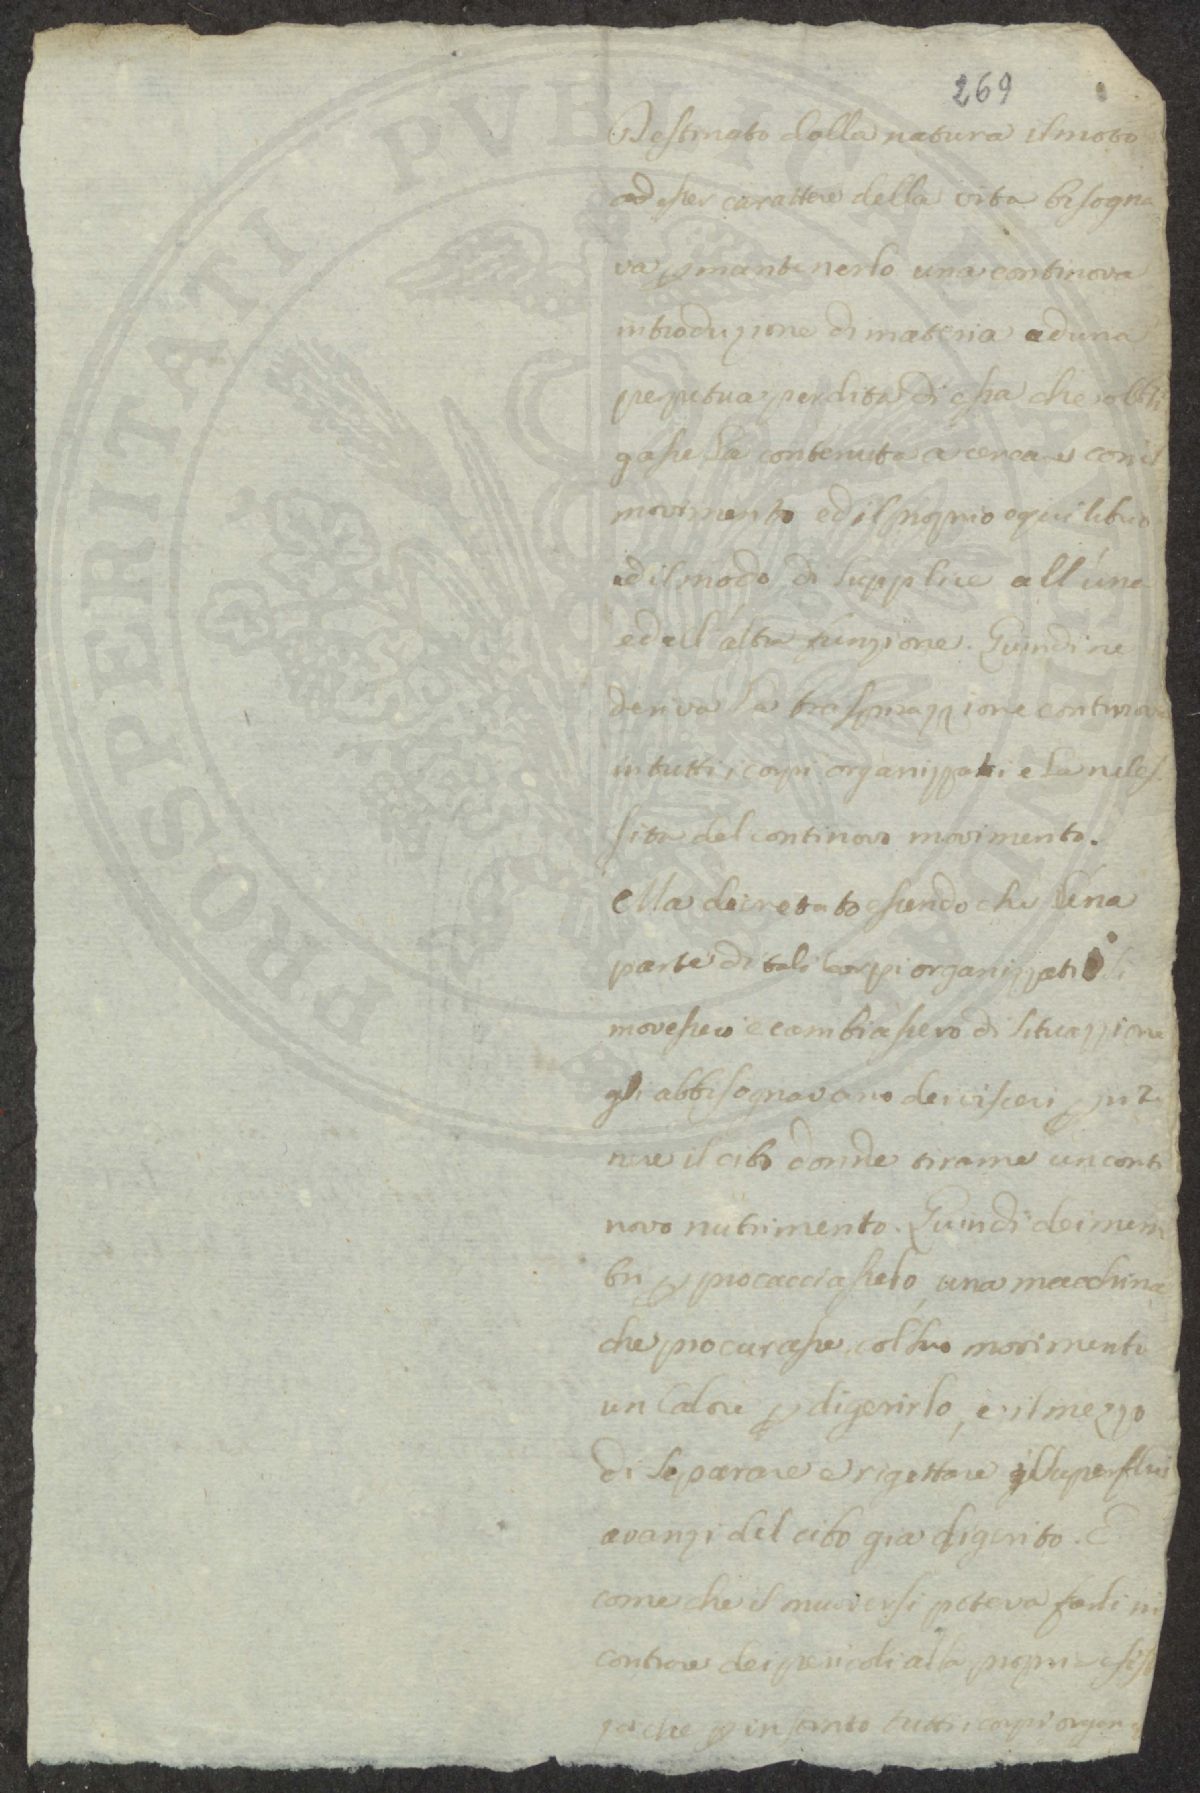 269
Destinato dalla natura il moto
ad esser carattere della vita bisogna
va p mantenerlo una continova
introduzione di materia ad una
perpetua perdita di essa che obbli
gasse la contenuta a cercare con il
movimento ed il proprio equilibrio
ed il modo di supplire all'una
ed all'altra funzione. Quindi ne
deriva la traspirazzione continova
in tutti i corpi organizzati e la neces
sita del continovo movimento.
Ella decretato essendo che una
parte di tali corpi organizzati si
movessero e cambiassero di situazzione
gli abbisognavano dei visceri p
nere il cibo donde tirarne un conti
novo nutrimento. Quindi dei mem
bri p procacciasselo, una macchina
che procurasse col suo movimento
un calore p digerirlo, e il mezzo
di separare e rigettare gl'superflui
avanzi del cibo gia digerito. E
come che il muoversi poteva farli in
contrare dei pericoli alla propria esist
za che p instinto tutti i corpi organi
PROSPERITATI PUBLICAE AUGENDAE